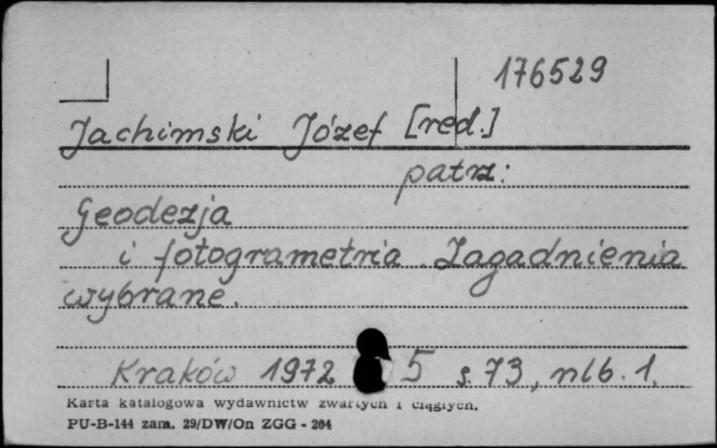 176529
Jachimski Józef [red.]
patrz:
Geodezja
i fotogrametria. Zagadnienia
wybrane.
Kraków 1972 5 s. 73, nlb. 1.
Karta katalogowa wydawnictw zwartych i ciągłych.
PU-B-144 zam. 29/DW/On ZGG - 264